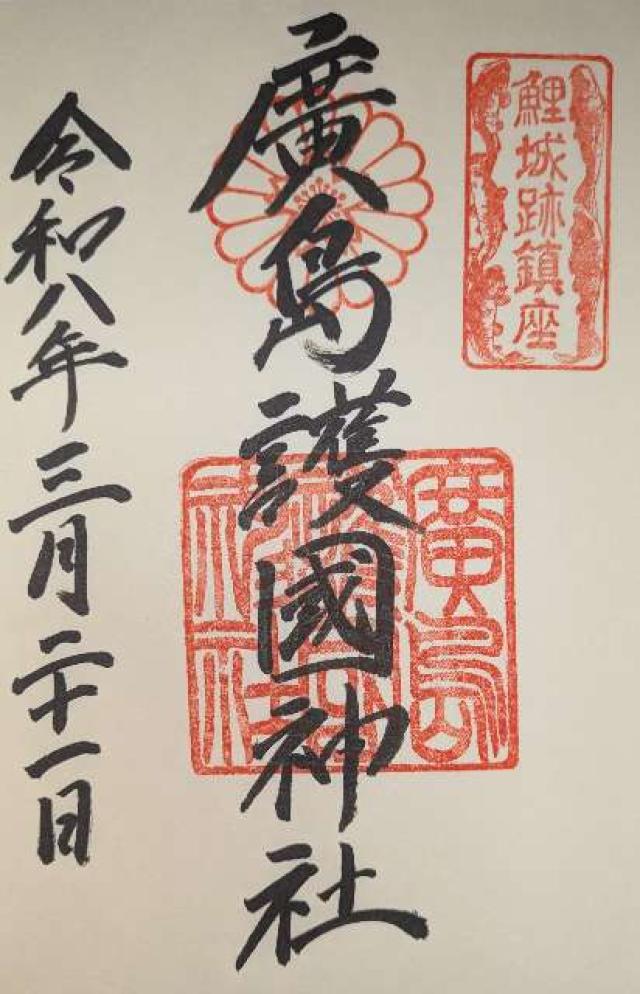 鯉城跡鎮座
廣島護國神社
廣島護國神社
令和八年三月二十一日